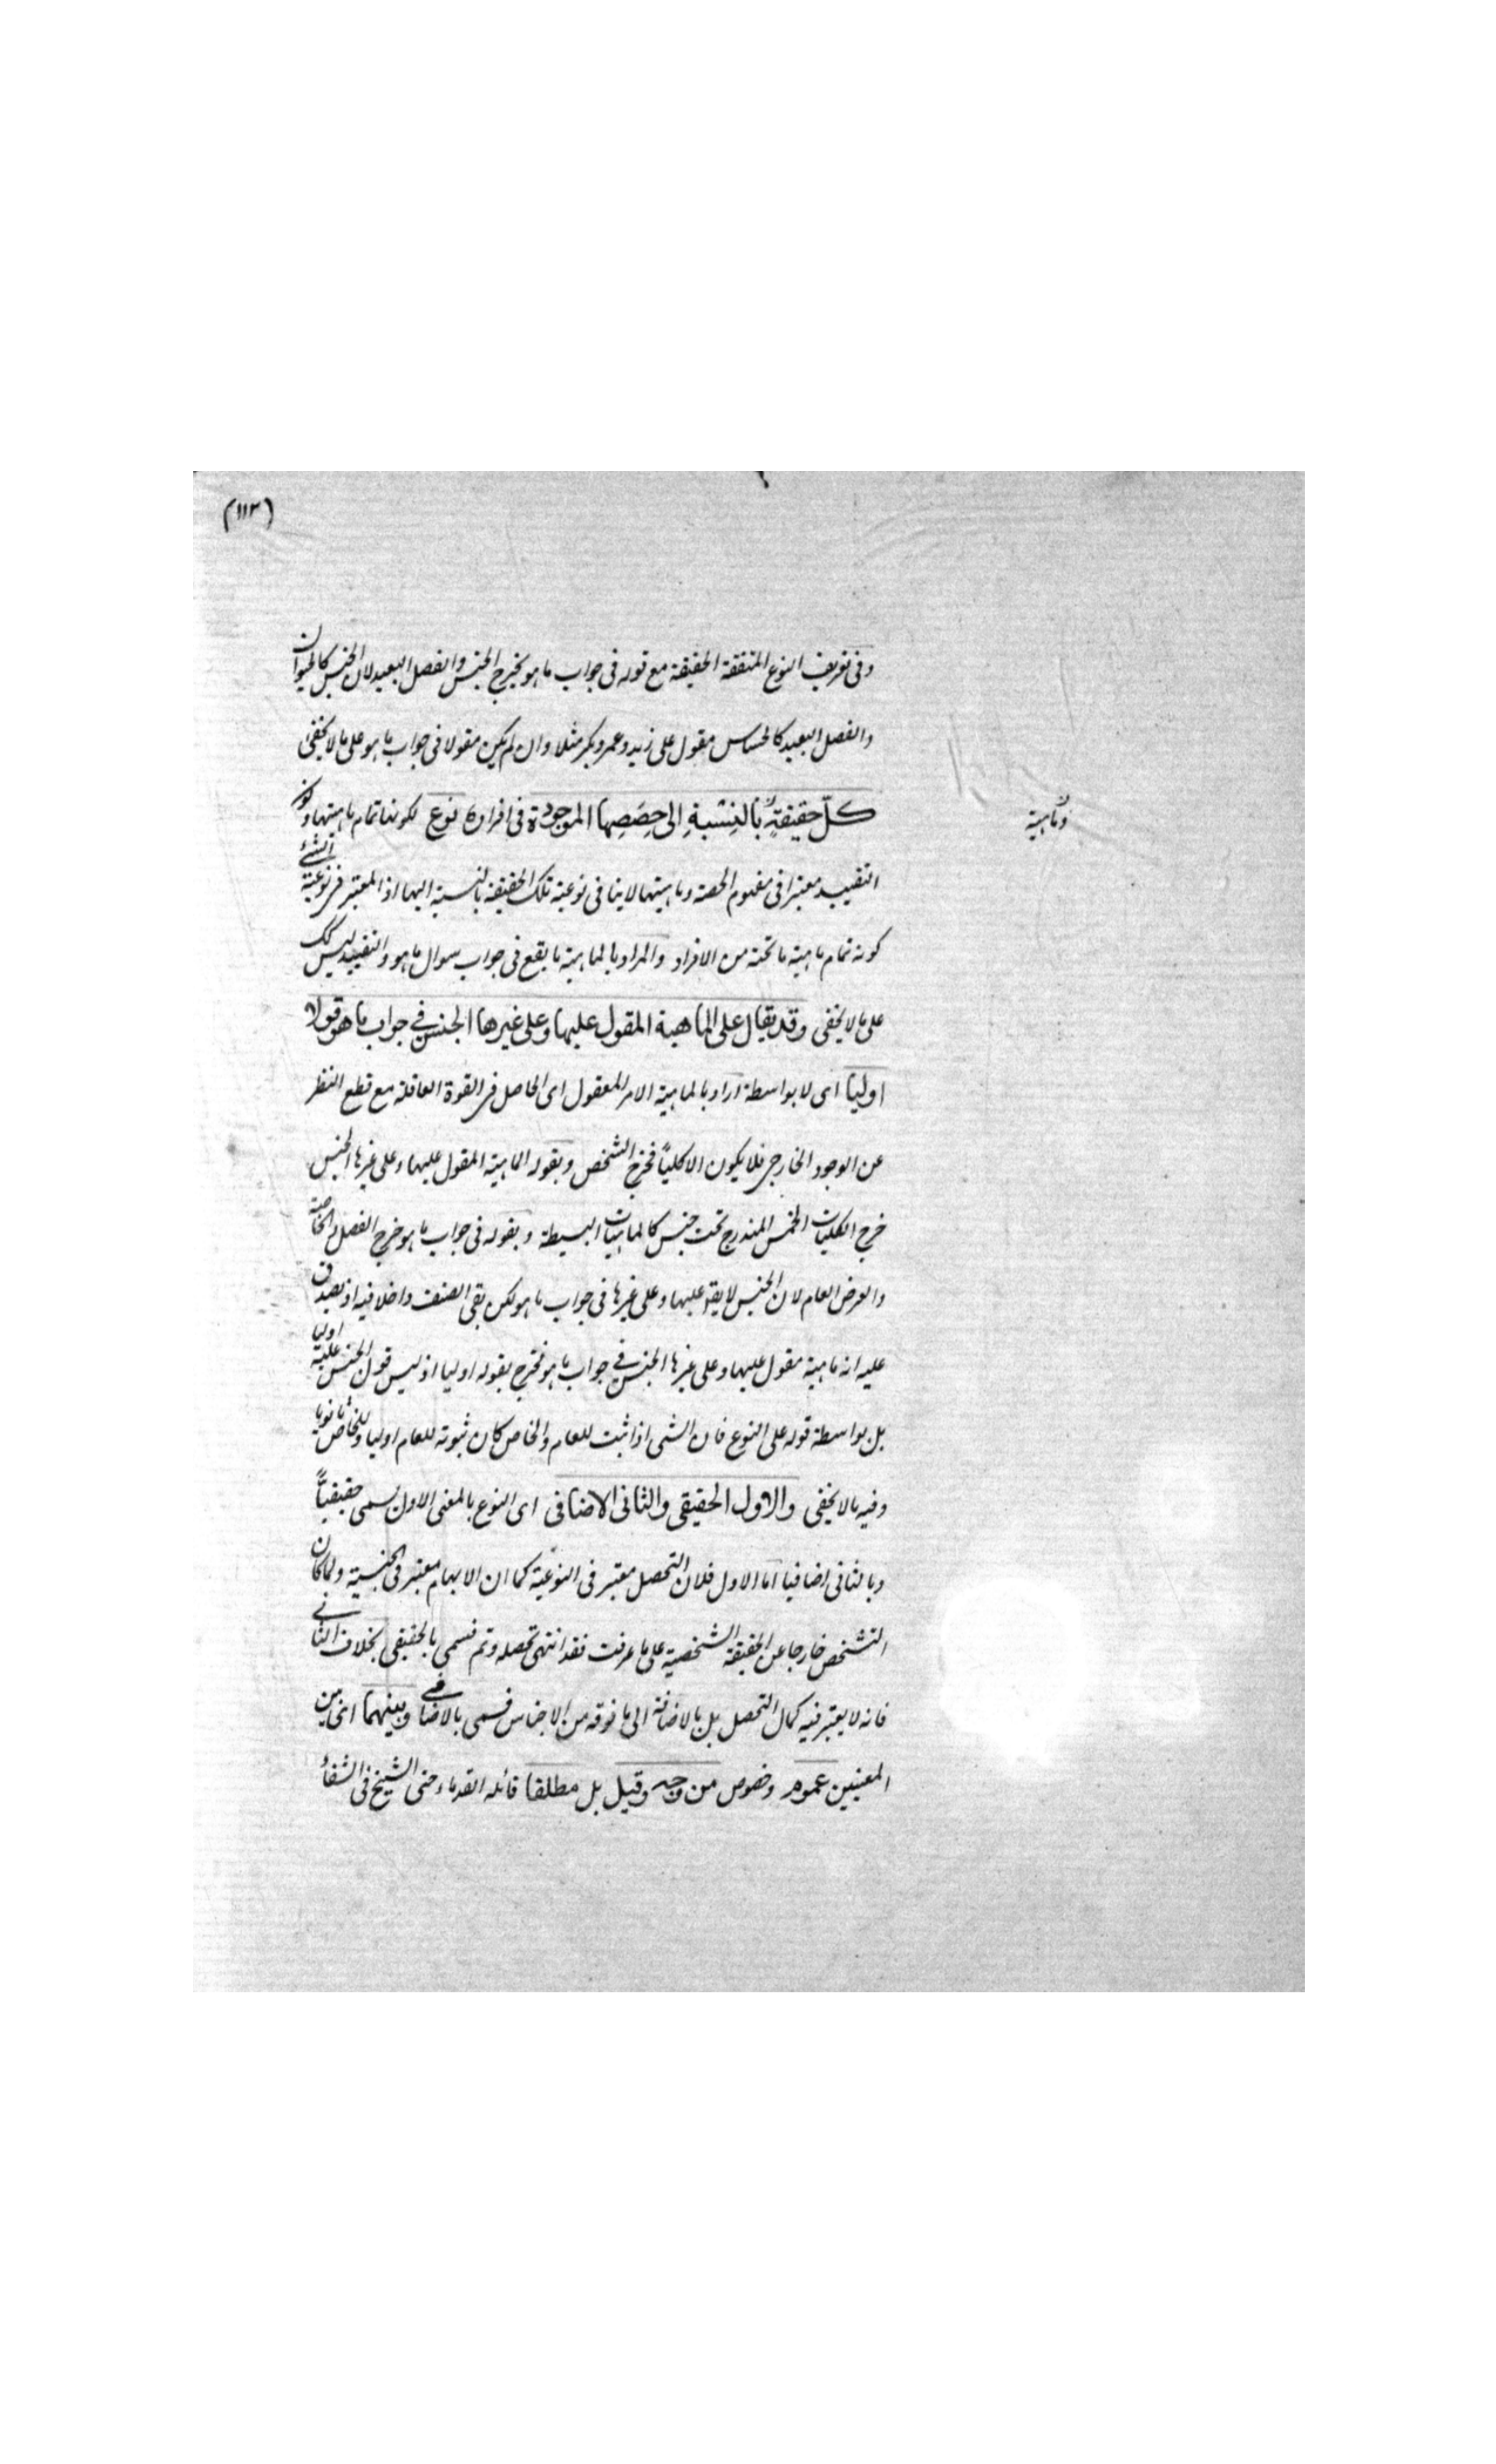 (١١٣)
وفى تعريف النوع المتفقة الحقيقة مع قوله فى جواب ما هو يخرج الجنس والفصل البعيد لان الجنس كالحيوان
والفصل البعيد كالحساس مقول على زيد وعمر وبكر مثلا وان لم يكن مقولا فى جواب ما هو على ما لا يخفى
كلّ حقيقةٍ بالنِسْبةِ الى حِصَصِها الموجودة فى افراده نوع لكونها تمام ماهيتها وكون
التقييد معتبرا فى مفهوم الحصة وماهيتها لا ينافى نوعية تلك الحقيقة بالنسبة اليها اذ المعتبر فى نوعية الشئ
كونه تمام ماهية ما تحته من الافراد والمراد بالماهية ما يقع فى جواب سوال ما هو والتقييد ليس كك
على ما لا يخفى وقد يقال على الماهية المقول عليها وعلى غيرها الجنس فى جواب ما هو قولا
اوليا اى لا بواسطة اراد بالماهية الامر المعقول اى الحاصل فى القوة العاقلة مع قطع النظر
عن الوجود الخارجى فلا يكون الا كليًا فخرج الشخص وبقوله الماهية المقول عليها وعلى غيرها الجنس
خرج الكليات الخمس المندرج تحت جنس كالماهيات البسيطة وبقوله فى جواب ما هو خرج الفصل والخاصة
والعرض العام لان الجنس لا يقع عليها وعلى غيرها فى جواب ما هو لكن بقى الصنف داخلا فيه اذ يصدق
عليه انه ماهية مقول عليها وعلى غيرها الجنس فى جواب ما هو فخرج بقوله اوليا اذ ليس قول الجنس عليه اوليا
بل بواسطة قوله على النوع فان الشى اذا ثبت للعام والخاص كان ثبوته للعام اوليا وللخاص ثانويا
وفيه ما لا يخفى والاول الحقيقى والثانى الاضافى اى النوع بالمعنى الاول يسمى حقيقيًّا
وبالثانى اضافيا اما الاول فلان التحصل معتبر فى النوعية كما ان الابهام معتبر فى الجنسية ولما كان
التشخص خارجا عن الحقيقة الشخصية على ما عرفت فقد انتهى تحصله وتم فسمى بالحقيقى بخلاف الثانى
فانه لا يعتبر فيه كمال التحصل بل بالاضافة الى ما فوقه من الاجناس فسمى بالاضافى وبينهما اى بين
المعنيين عموم وخصوص من وجه وقيل بل مطلقا قائله القدماء حتى الشيخ فى الشفأ
وماهية